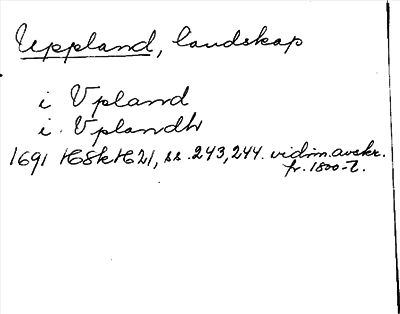 Uppland, landskap
i Vpland
i. Vplandh
1691 HSkH21, ss. 243, 244. vidim. avskr.
fr. 1800-t.